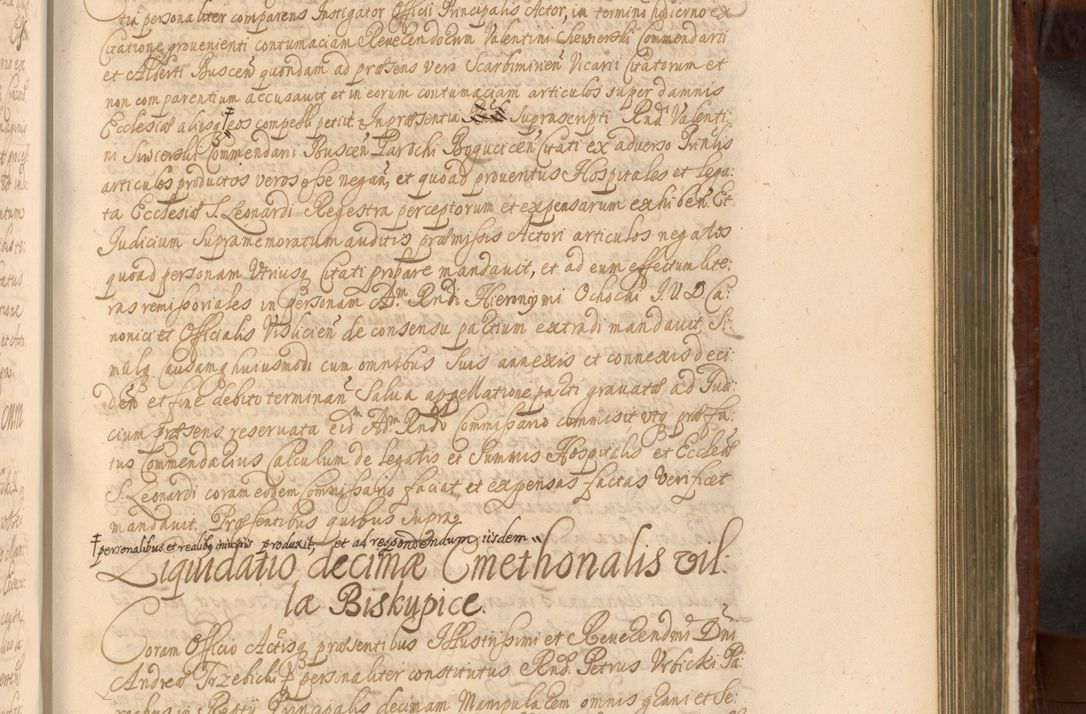 tia personaliter comparens Instigator Officii Principalis Actor, in termino hodierno ex
Citatione provenienti contumaciam Reverendorum Valentini Siewierski Commendarii
et Alberti Buscen̄ quondam ad præsens vero Scarbiminen̄ Vicarii Citatorum et
non comparentium accusavit et in eorum contumaciam articulos super damnis
Ecclesiæ aliisq̃ ‡ eos compelli petiit. In præsentia Suprascripti Rnd̄i Valenti-
ni Siewierski Commendarii Buscen̄ Parochi Bogucicen̄ Citati ex adverso Prin̄lis
articulos productos veros esse negan̄, et quoad proventus Hospitales et lega-
ta Ecclesiæ S. Leonardi Regestra perceptorum et expensarum exhiben̄. Et
Judicium Supramemoratum auditis præmissis Actori articulos negatos
quoad personam Utriusq̃ Citati probare mandavit, et ad eum effectum lite-
ras remissoriales in personam Adm̄ Rnd̄i Hieronymi Ochocki J.U.D. Ca-
nonici et Officialis Vislicien̄ de consensu partium extradi mandavit. Si-
mulq̃ causam huiusmodi cum omnibus suis annexis et connexis deci-
den̄ et fine debito terminan̄ Salva appellatione parti gravatæ ad Judi-
cium præsens reservata eid̄m Adm̄ Rnd̄o Commissario commisit utq̃ præfa-
tus Commendarius Calculum de legatis et Summis Hospitalis et Ecclesiæ
S. Leonardi coram eodem Commissario faciat, et expensas factas verificet
mandavit. Præsentibus quibus supra.
‡ personalibus et realibq̃ iniuriis produxit, et ad respondendum iisdem "
Liquidatio decimæ Cmethonalis vil-
læ Biskupice.
Coram Officio Actisq̃ præsentibus Illustrissimi et Reverendmi Dn̄i
Andreæ Trzebicki Ep̄i personaliter constitutus Rnd̄. Petrus Urbicki Pa-
rochus in Principalis decimam Manipularem omnis grani et Se-